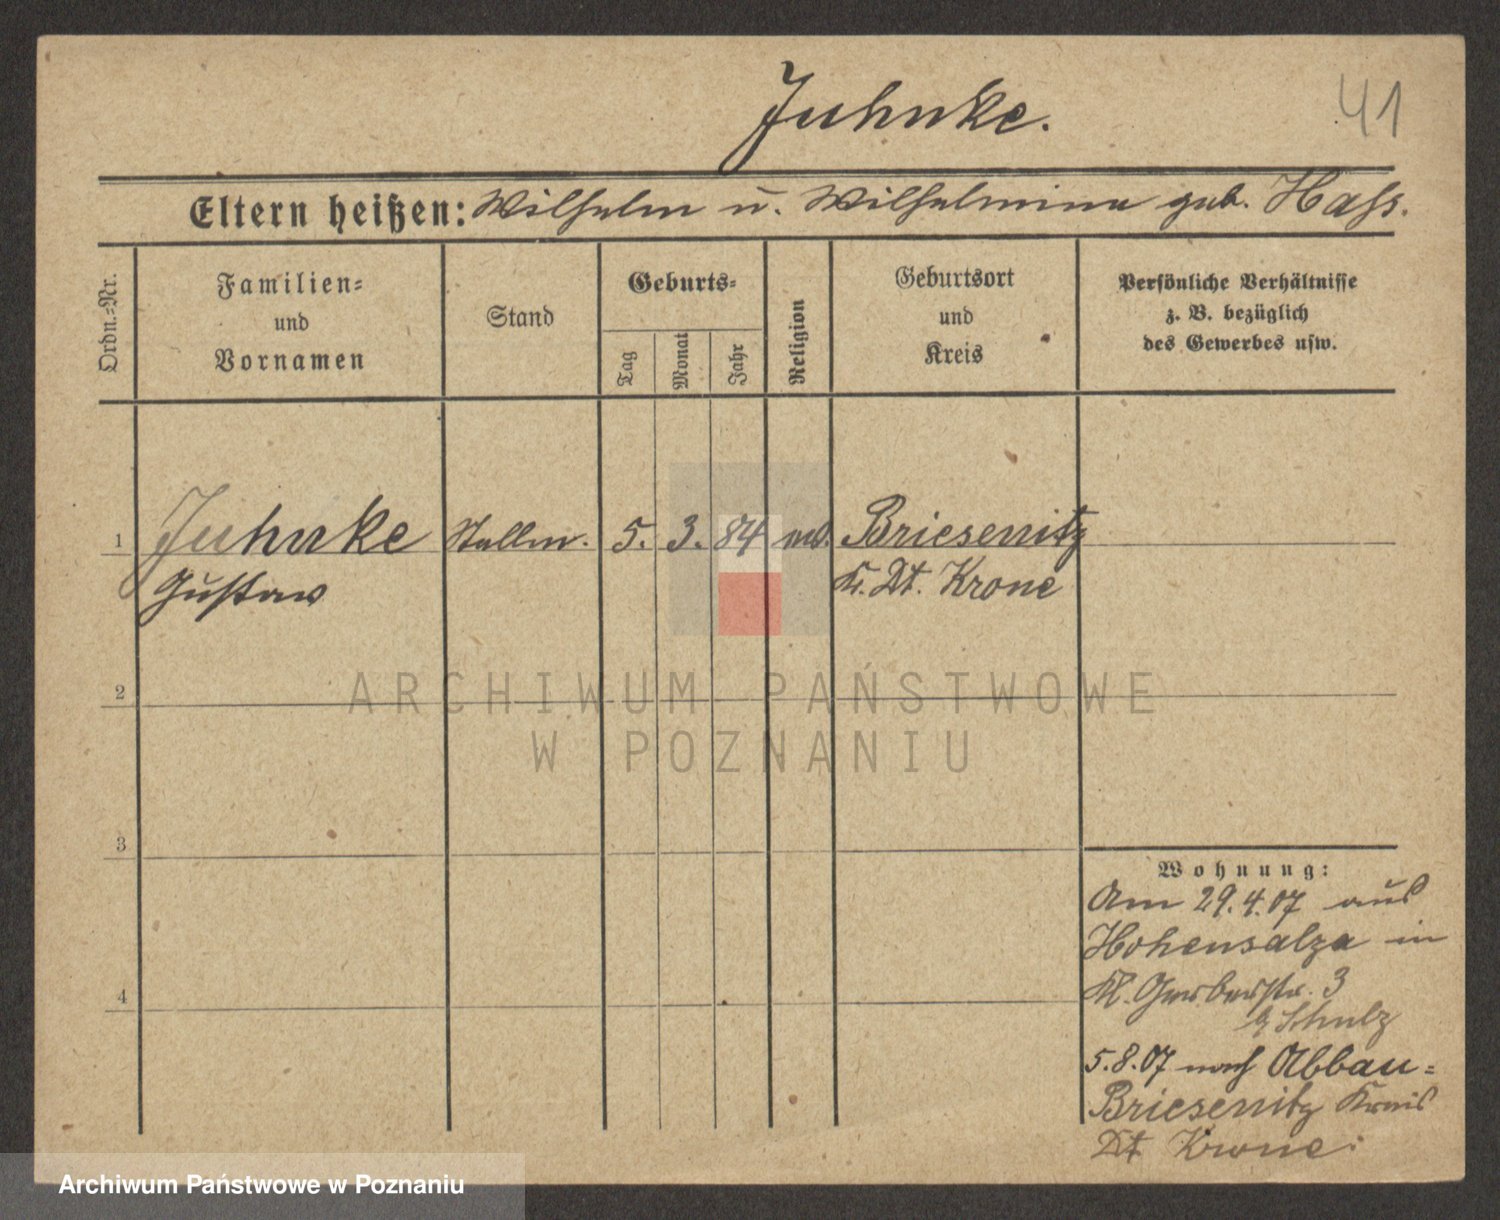 Juhnke.
41
Eltern heißen: Wilhelm u. Wilhelmine geb. Hass.
Ordn.-Nr.
Familien-
und
Vornamen
Stand
Geburts-
Tag
Monat
Jahr
Religion
Geburtsort
und
Kreis
Persönliche Verhältnisse
z. B. bezüglich
des Gewerbes usw.
1 Juhnke Stellm. 5. 3. 84 Briesenitz
Gustaw K. Dt. Krone
2
3
4
Wohnung:
Am 29.4.07 aus
Hohensalza in
Kl. Gerberstr. 3
Schulz
5.8.07 nach Abbau-
Briesenitz Kreis
Dt Krone.
ARCHIWUM PAŃSTWOWE
W POZNANIU
Archiwum Państwowe w Poznaniu